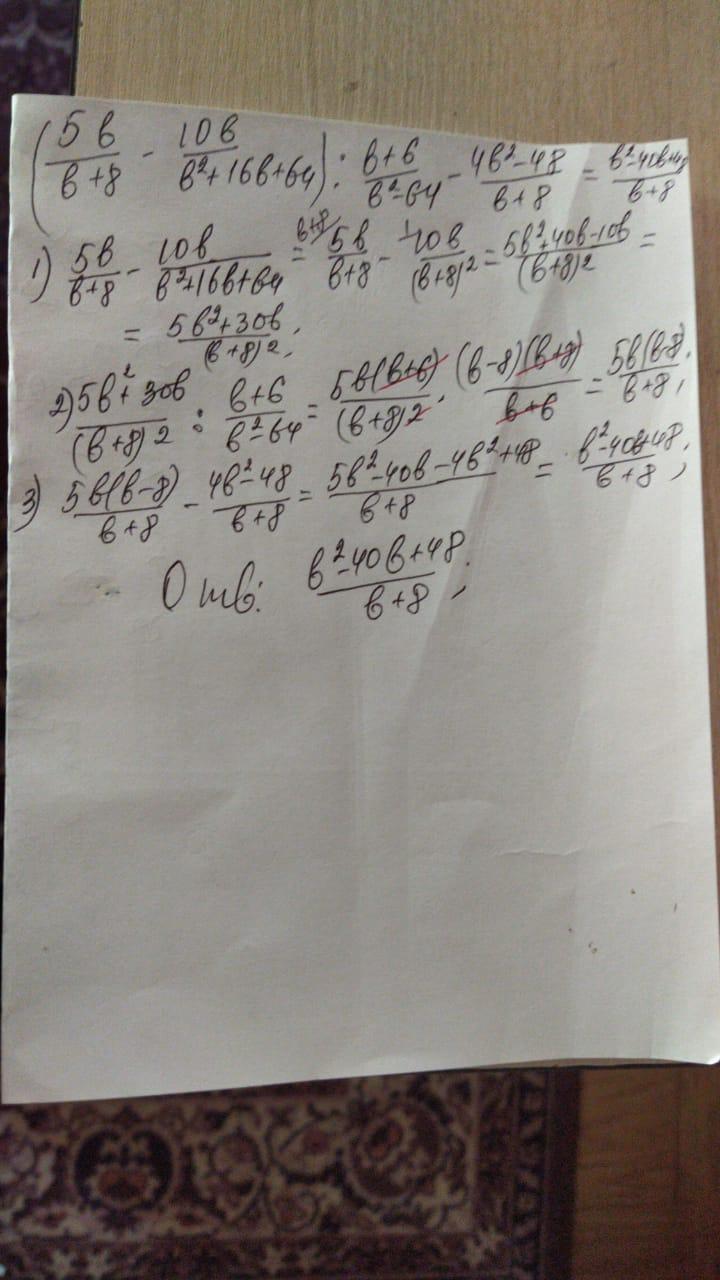 (5в/в+8 - 10в/в²+16в+64) : в+6/в²-64 - 4в²-48/в+8 = в²-40в+48/в+8
1) 5в/в+8 - 10в/в²+16в+64 = в+8/ 5в/в+8 - 1/ 10в/(в+8)² = 5в²+40в-10в/(в+8)² =
= 5в²+30в/(в+8)²;
2) 5в²+30в/(в+8)² : в+6/в²-64 = 5в(в+6)/(в+8)² · (в-8)(в+8)/в+6 = 5в(в-8)/в+8;
3) 5в(в-8)/в+8 - 4в²-48/в+8 = 5в²-40в-4в²+48/в+8 = в²-40в+48/в+8;
Отв: в²-40в+48/в+8;